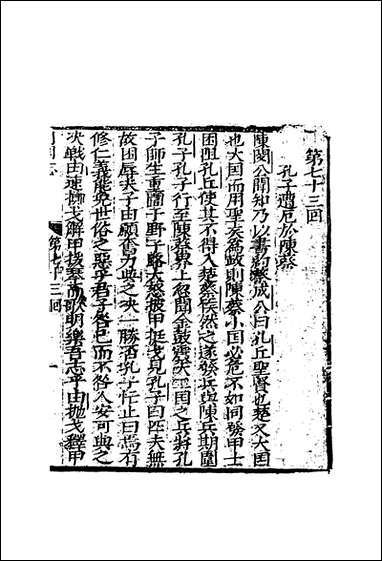 第七十三回
孔子遭厄於陳蔡
陳閔公聞知乃以書約蔡成公曰孔丘聖賢也楚又大国
也大国而用聖天爲政則陳蔡小国必危不如同發甲士
困阻孔丘使其不得入楚蔡侯然之遂發兵與陳兵期圍
孔子孔子行至陳蔡界上忽聞金鼓震天二国之兵將孔
子師生重圍于野子路大怒披甲挺戈見孔子曰匹夫無
故困辱夫子由願奮力與之决一勝否孔子止曰焉有
修仁義能免世俗之惡乎君子咎己而不咎人安可與之
决戰由速擲戈解甲援琴而歌明樂吾志乎由抛戈釋甲
第七十三回